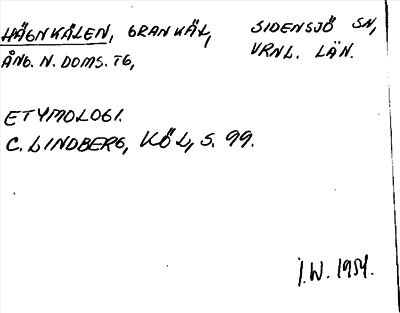 HÄGNKÅLEN, GRANKÄL, SIDENSJÖ SN,
ÅNG. N. DOMS. TG, VRNL. LÄN.
ETYMOLOGI.
C. LINDBERG, KÖL, S. 99.
I.W. 1954.